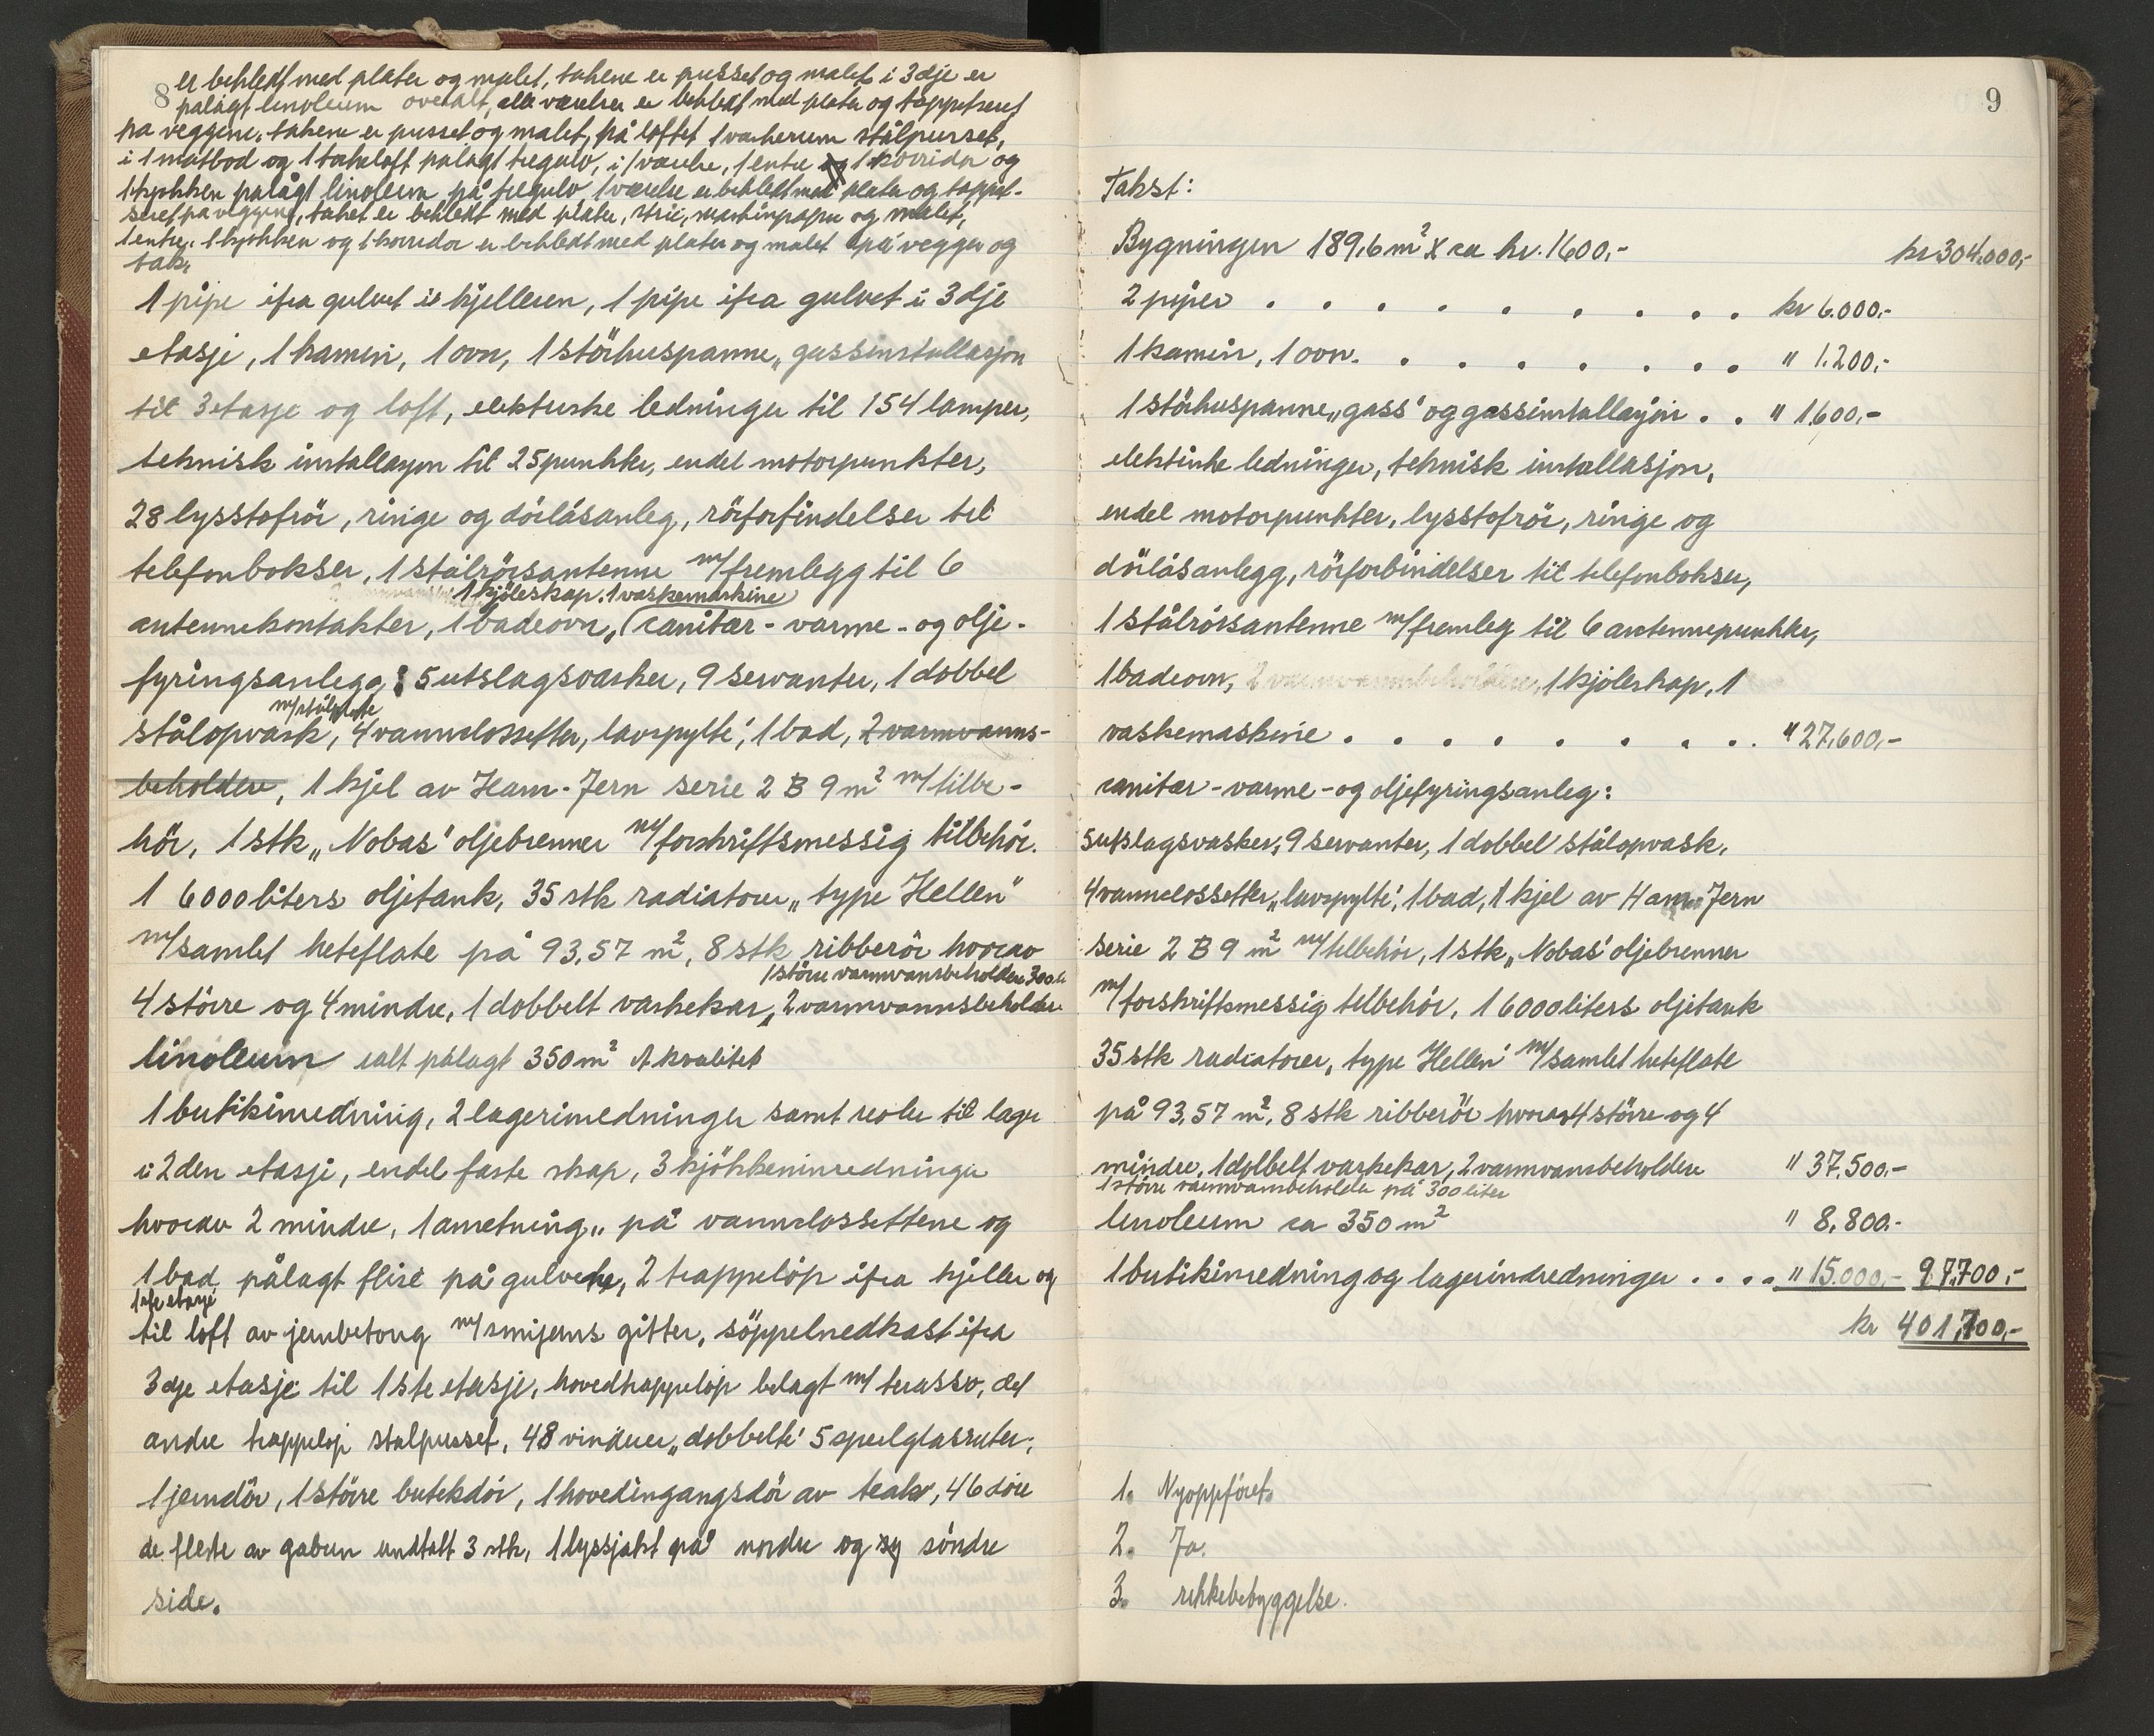 8
er beklædt med plater og malet, takene er pusset og malet i 3dje er
pålagt linoleum overalt, alle værelser er beklædt med plater og tappetseret
på veggene, takene er pusset og malet, på loftet 1 vaskerum stålpusset,
i 1 matbod og 1 tørkeloft pålagt tregulv, i 1 værelse, 1 entre og 1 korridor og
1 kjøkken pålagt linoleum på tregulv 1 værelse er beklædt med plater og tappet-
seret på veggene, taket er beklædt med plater, strie, maskinpapir og malet,
1 entre, 1 kjøkken og 1 korridor er beklædt med plater og malet på vegger og
tak.
1 pipe ifra gulvet i kjelleren, 1 pipe ifra gulvet i 3dje
etasje, 1 kamin, 1 ovn, 1 störhuspanne, gassinstallasjon
til 3 etasje og loft, elektriske ledninger til 154 lamper,
teknisk installasjon til 25 punkter, endel motorpunkter,
28 lysstofrör, ringe og dörlåsanleg, rörforfindelser til
telefonbokser, 1 stålrörsantenne m/fremlegg til 6
1 kjöleskap, 1 vaskemaskine
antennekontakter, 1 badeovn, sanitær- varme- og olje-
fyringsanlegg: 5 utslagsvasker, 9 servanter, 1 dobbel
m/stålplate
stålopvask, 4 vannclossetter, lavspylte', 1 bad, 2 varmvanns-
beholdere, 1 kjel av Ham-Jern serie 2 B 9 m² m/tilbe-
hör, 1 stk „Nobas' oljebrenner m/forskriftsmessig tilbehör.
1 6000 liters oljetank, 35 stk radiatorer „type Hellen"
m/samlet heteflate på 93,57 m², 8 stk ribberör hvorav
1 störe varmvansbeholdere 300 l.
4 större og 4 mindre, 1 dobbelt vaskekar, 2 varmvannsbeholdere
linoleum ialt pålagt 350 m² A kvalitet
1 butikinredning, 2 lagerinredninger samt reoler til lager
i 2den etasje, endel faste skap, 3 kjökkeninredninger
hvorav 2 mindre, 1 anretning, på vannclossettene og
1 bad pålagt flise på gulvene, 2 trappelöp ifra kjeller og
1ste etasje
til loft av jernbetong m/smijerns gitter, söppelnedkast ifra
3dje etasje til 1ste etasje, hovedtrappelöp belagt m/terasso, det
andre trappelöp stålpusset, 48 vinduer „dobbelte' 5 speilglasruter,
1 jerndör, 1 större butikdör, 1 hovedingangsdör av teak, 46 döre
de fleste av gabun undtalt 3 stk, 1 lyssjakt på nordre og söndre
side.
9
Takst:
Bygningen 189,6 m² X ca kr. 1600,- kr 304.000,-
2 piper . . . . . . . . . kr 6.000,-
1 kamin, 1 ovn. . . . . . . . " 1.200,-
1 störhuspanne „gass' og gassinstallasjon . . " 1.600,-
elektriske ledninger, teknisk installasjon,
endel motorpunkter, lysstofrör, ringe og
dörlåsanlegg, rörforbindelser til telefonbokser,
1 stålrörsantenne m/fremleg til 6 antennepunkter,
1 badeovn, 2 varmvannsbeholdere, 1 kjöleskap, 1
vaskemaskine . . . . . . . . . " 27.600,-
sanitær-varme-og oljefyringsanleg:
5 utslagsvasker, 9 servanter, 1 dobbel stålopvask,
4 vannclossetter „lavspylte', 1 bad, 1 kjel av Ham-Jern
serie 2 B 9 m² m/tilbehör, 1 stk „Nobas' oljebrenner
m/forskriftsmessig tilbehör, 1 6000 liters oljetank
35 stk radiatorer „type Hellen' m/samlet heteflate
på 93,57 m², 8 stk ribberör hvorav 4 större og 4
mindre, 1 dobbelt vaskekar, 2 varmvansbeholdere " 37.500,-
1 störe varmvansbeholder på 300 liter
linoleum ca 350 m² " 8,800.-
1 butikinredning og lagerindredninger . . . . " 15.000,- 97,700,-
kr 401,700,-
1. Nyoppföret.
2. Ja.
3. rekkebebyggelse.